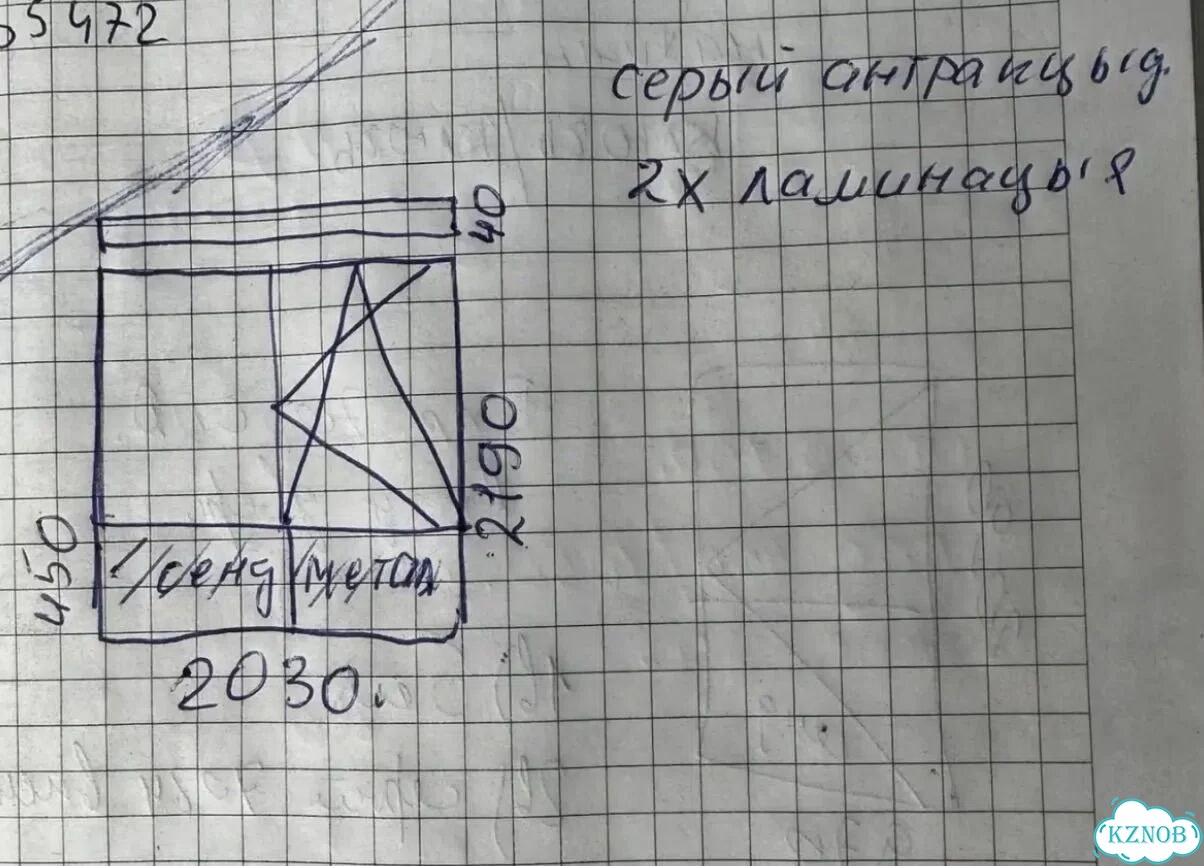 5472
серый антрацыд.
2х ламинацыя
40
2190
450
/сенд
метал
2030.
KZNOB